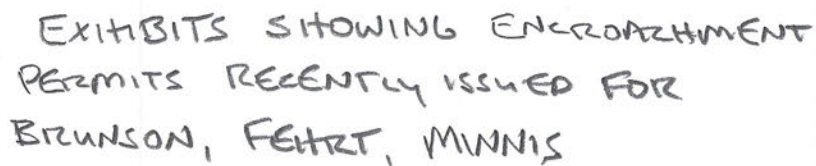 EXHIBITS SHOWING ENCROACHMENT
PERMITS RECENTLY ISSUED FOR
BRUNSON, FEHRT, MINNIS